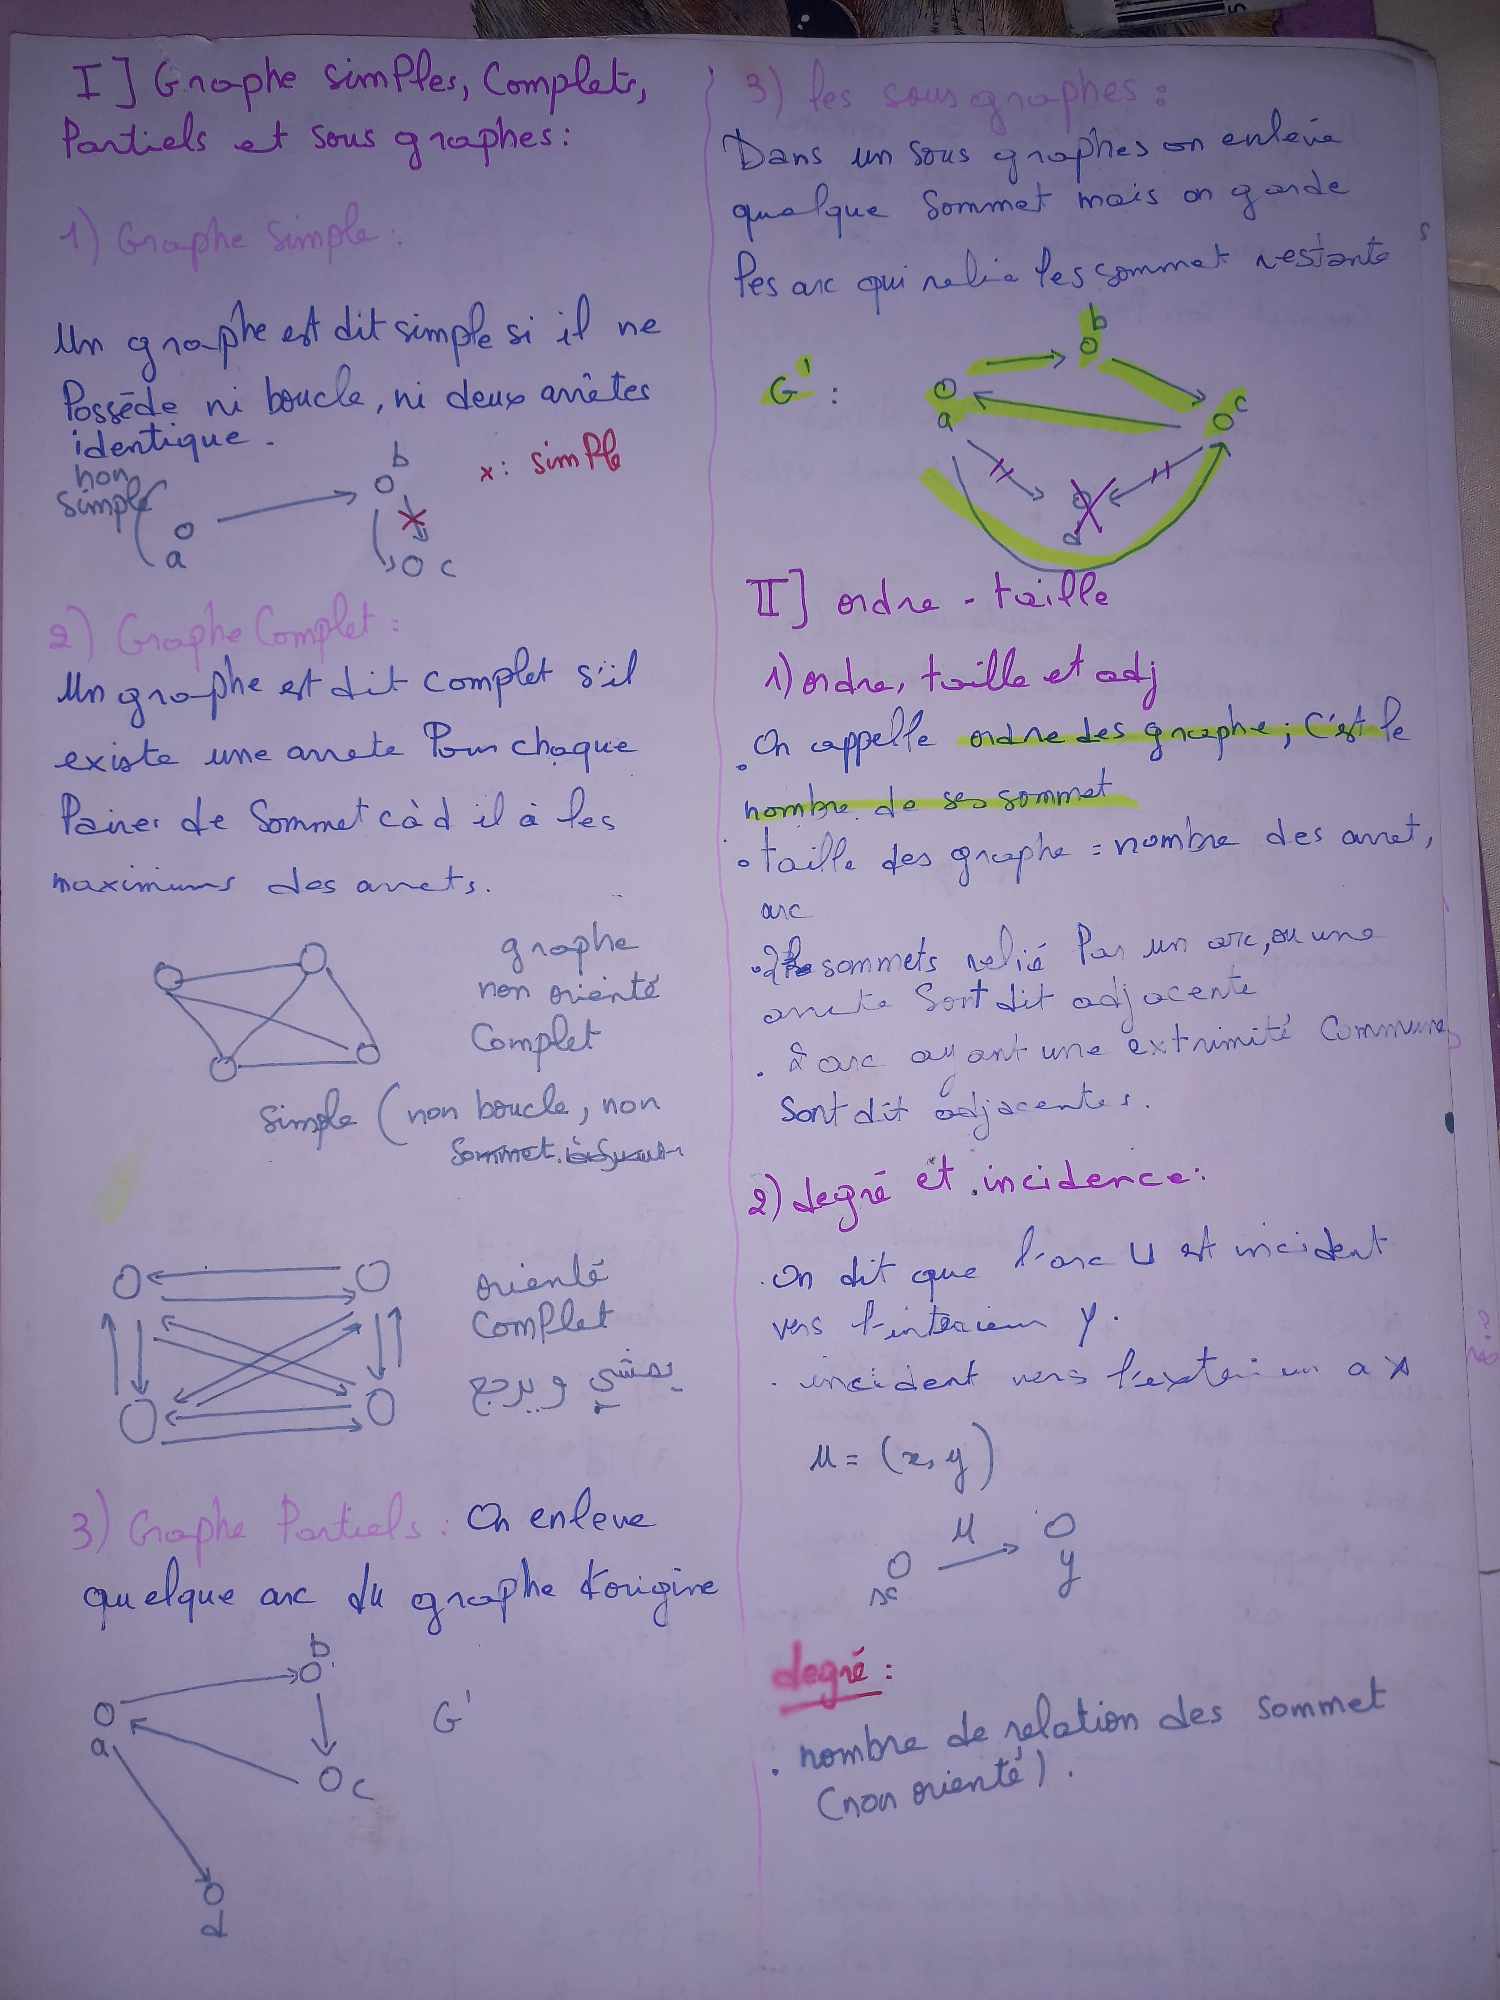 I] Graphe simples, Complets,
Partiels et sous graphes:
1) Graphe Simple:
Un graphe est dit simple si il ne
Posséde ni boucle, ni deux arrêtes
identique.
non
simple
a
b
c
x: simple
2) Graphe Complet:
Un graphe est dit complet s'il
existe une arrete Pour chaque
Paires de Sommet càd il à les
maximums des arrets.
graphe
non orienté
Complet
Simple (non boucle, non
Sommet
orienté
Complet
يمشي و يرجع
3) Graphe Partiels: On enleve
quelque arc du graphe d'origine
b
a
G'
c
d
3) les sous graphes:
Dans un sous graphes on enlève
quelque Sommet mais on garde
les arc qui relie les sommet restants
b
G' :
a
c
d
II] ordre - taille
1) ordre, taille et adj
. On appelle ordre des graphe; c'est le
nombre de ses sommet
. taille des graphe = nombre des arret,
arc
. 2 sommets relié Par un arc, ou une
arrete Sont dit adjacente
. 2 arc ayant une extrimité Commune
Sont dit adjacentes.
2) degré et incidence:
. On dit que l'arc U est incident
vers l'interieur y.
. incident vers l'exterieur a x
u = (x, y)
u
x
y
degré :
. nombre de relation des sommet
(non orienté).